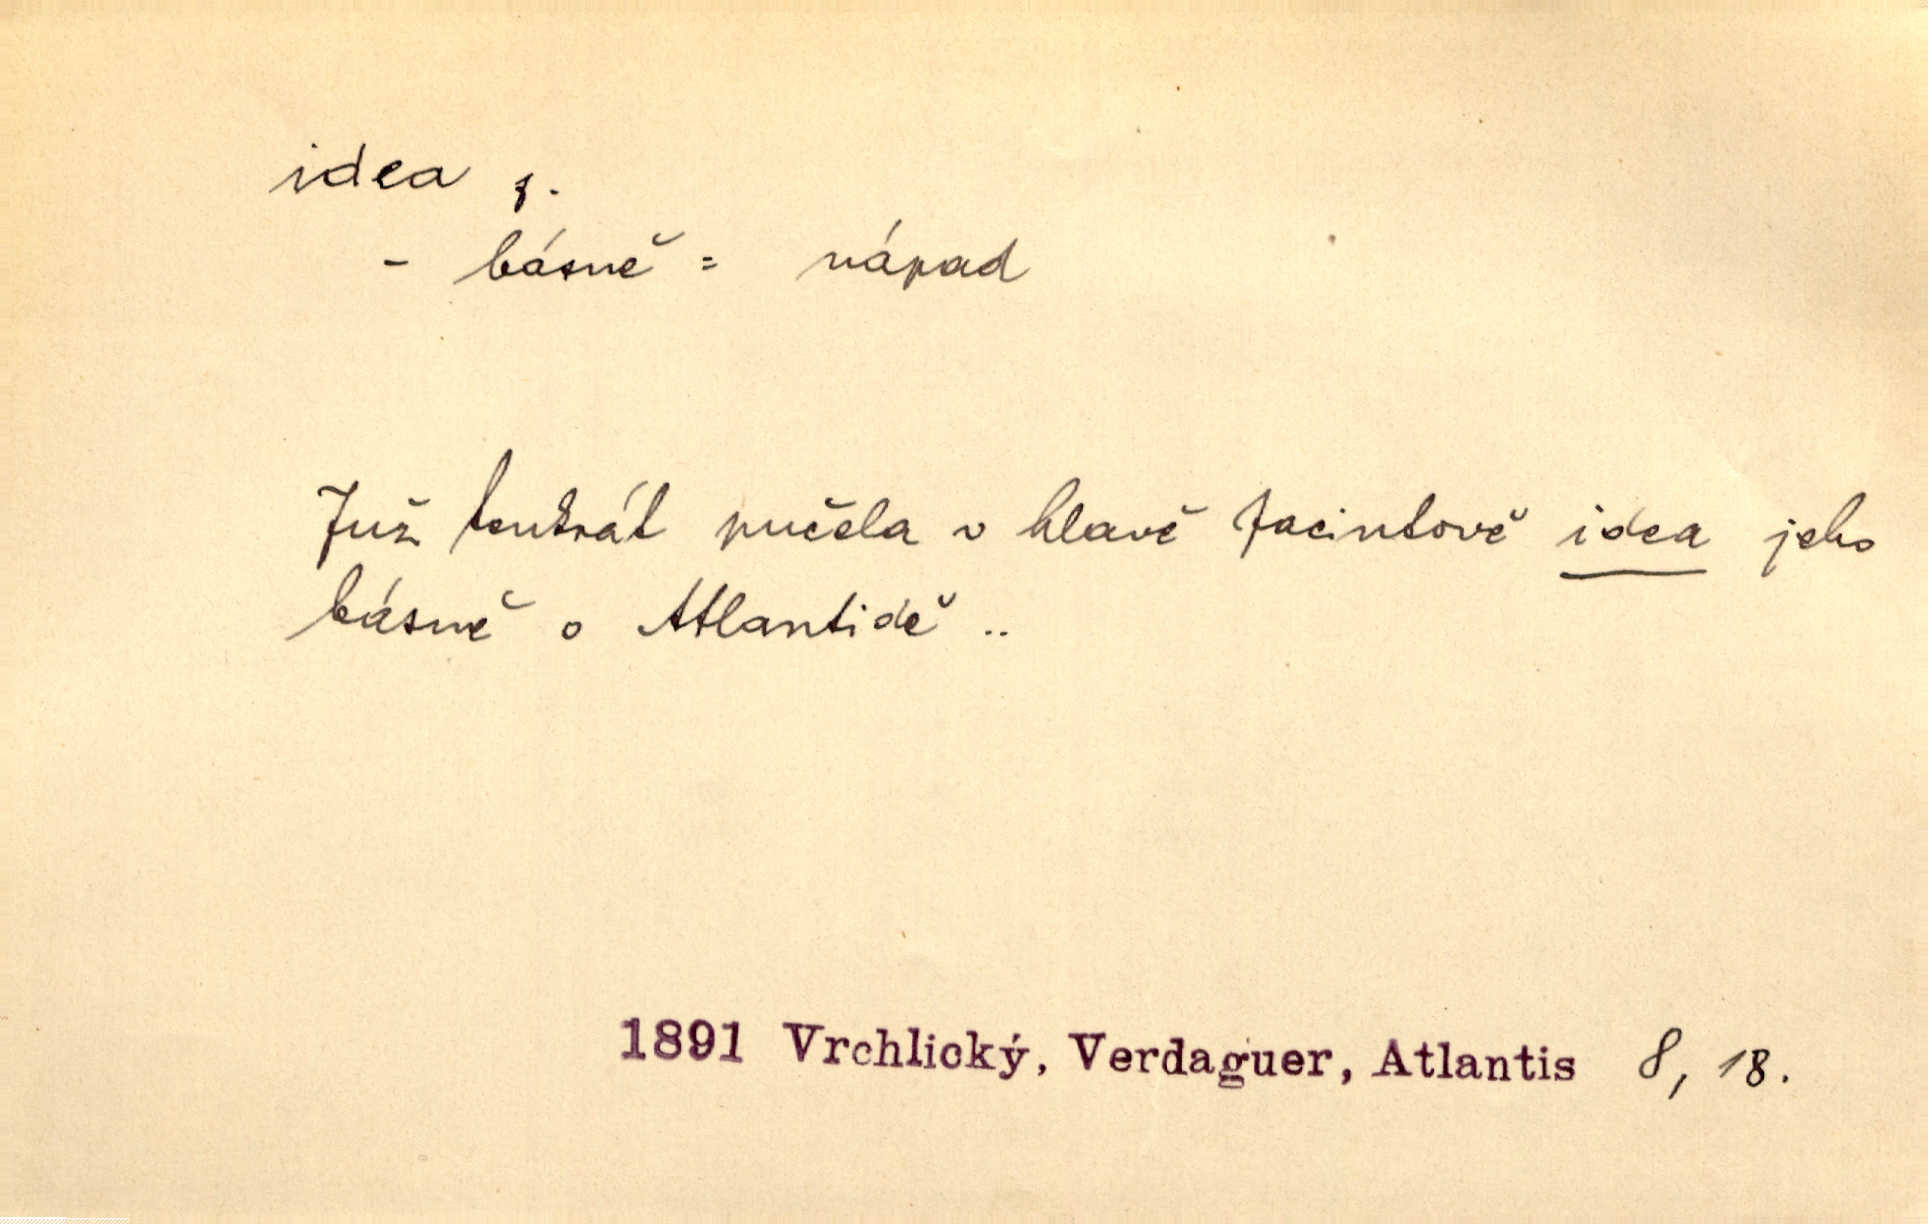 idea ž.
- básně = nápad
Již tenkrát pučela v hlavě Jacintově idea jeho
básně o Atlantidě ..
1891 Vrchlický, Verdaguer, Atlantis 8, 18.